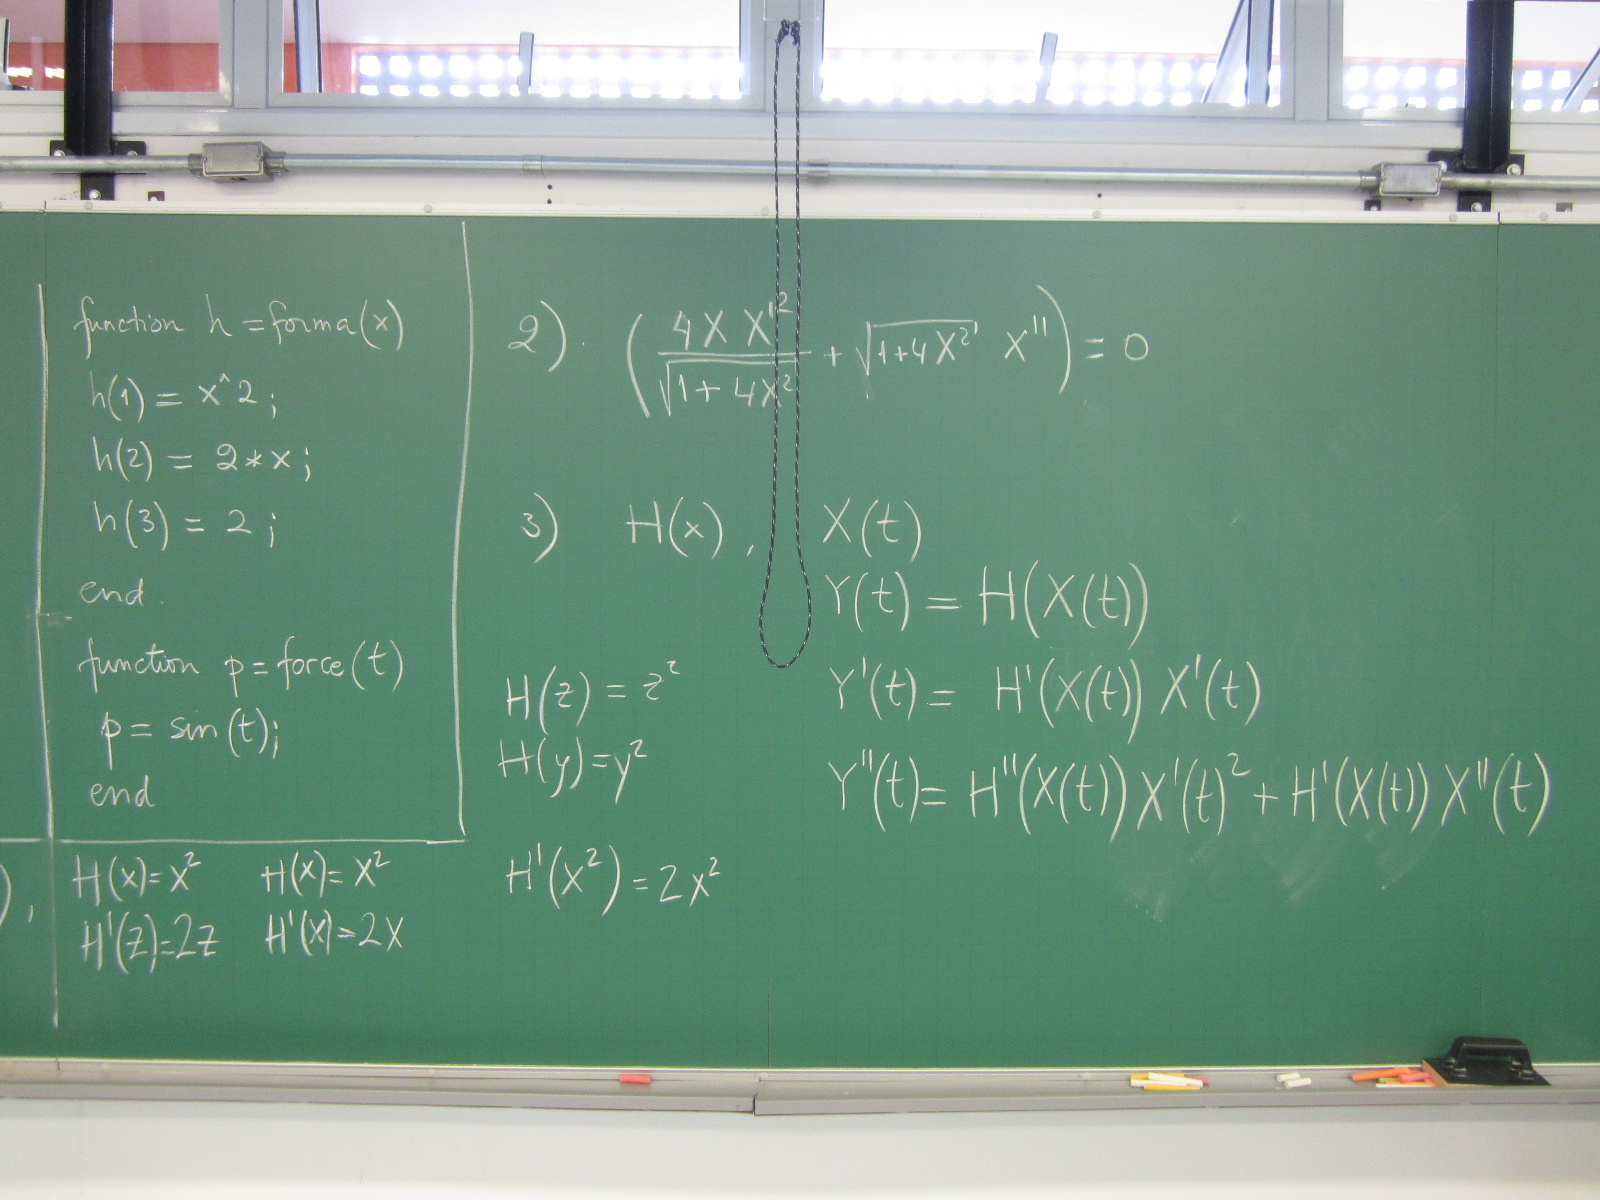 function h = forma(x)
h(1) = x^2;
h(2) = 2*x;
h(3) = 2;
end.
function p = force(t)
p = sin(t);
end
),
H(x)=x² H(x)=x²
H'(z)=2z H'(x)=2x
2). (4XX'²/√(1+4X²) + √(1+4X²) X'') = 0
3) H(x), X(t)
Y(t) = H(X(t))
H(z) = z²
Y'(t) = H'(X(t)) X'(t)
H(y)=y²
Y''(t) = H''(X(t)) X'(t)² + H'(X(t)) X''(t)
H'(x²) = 2x²